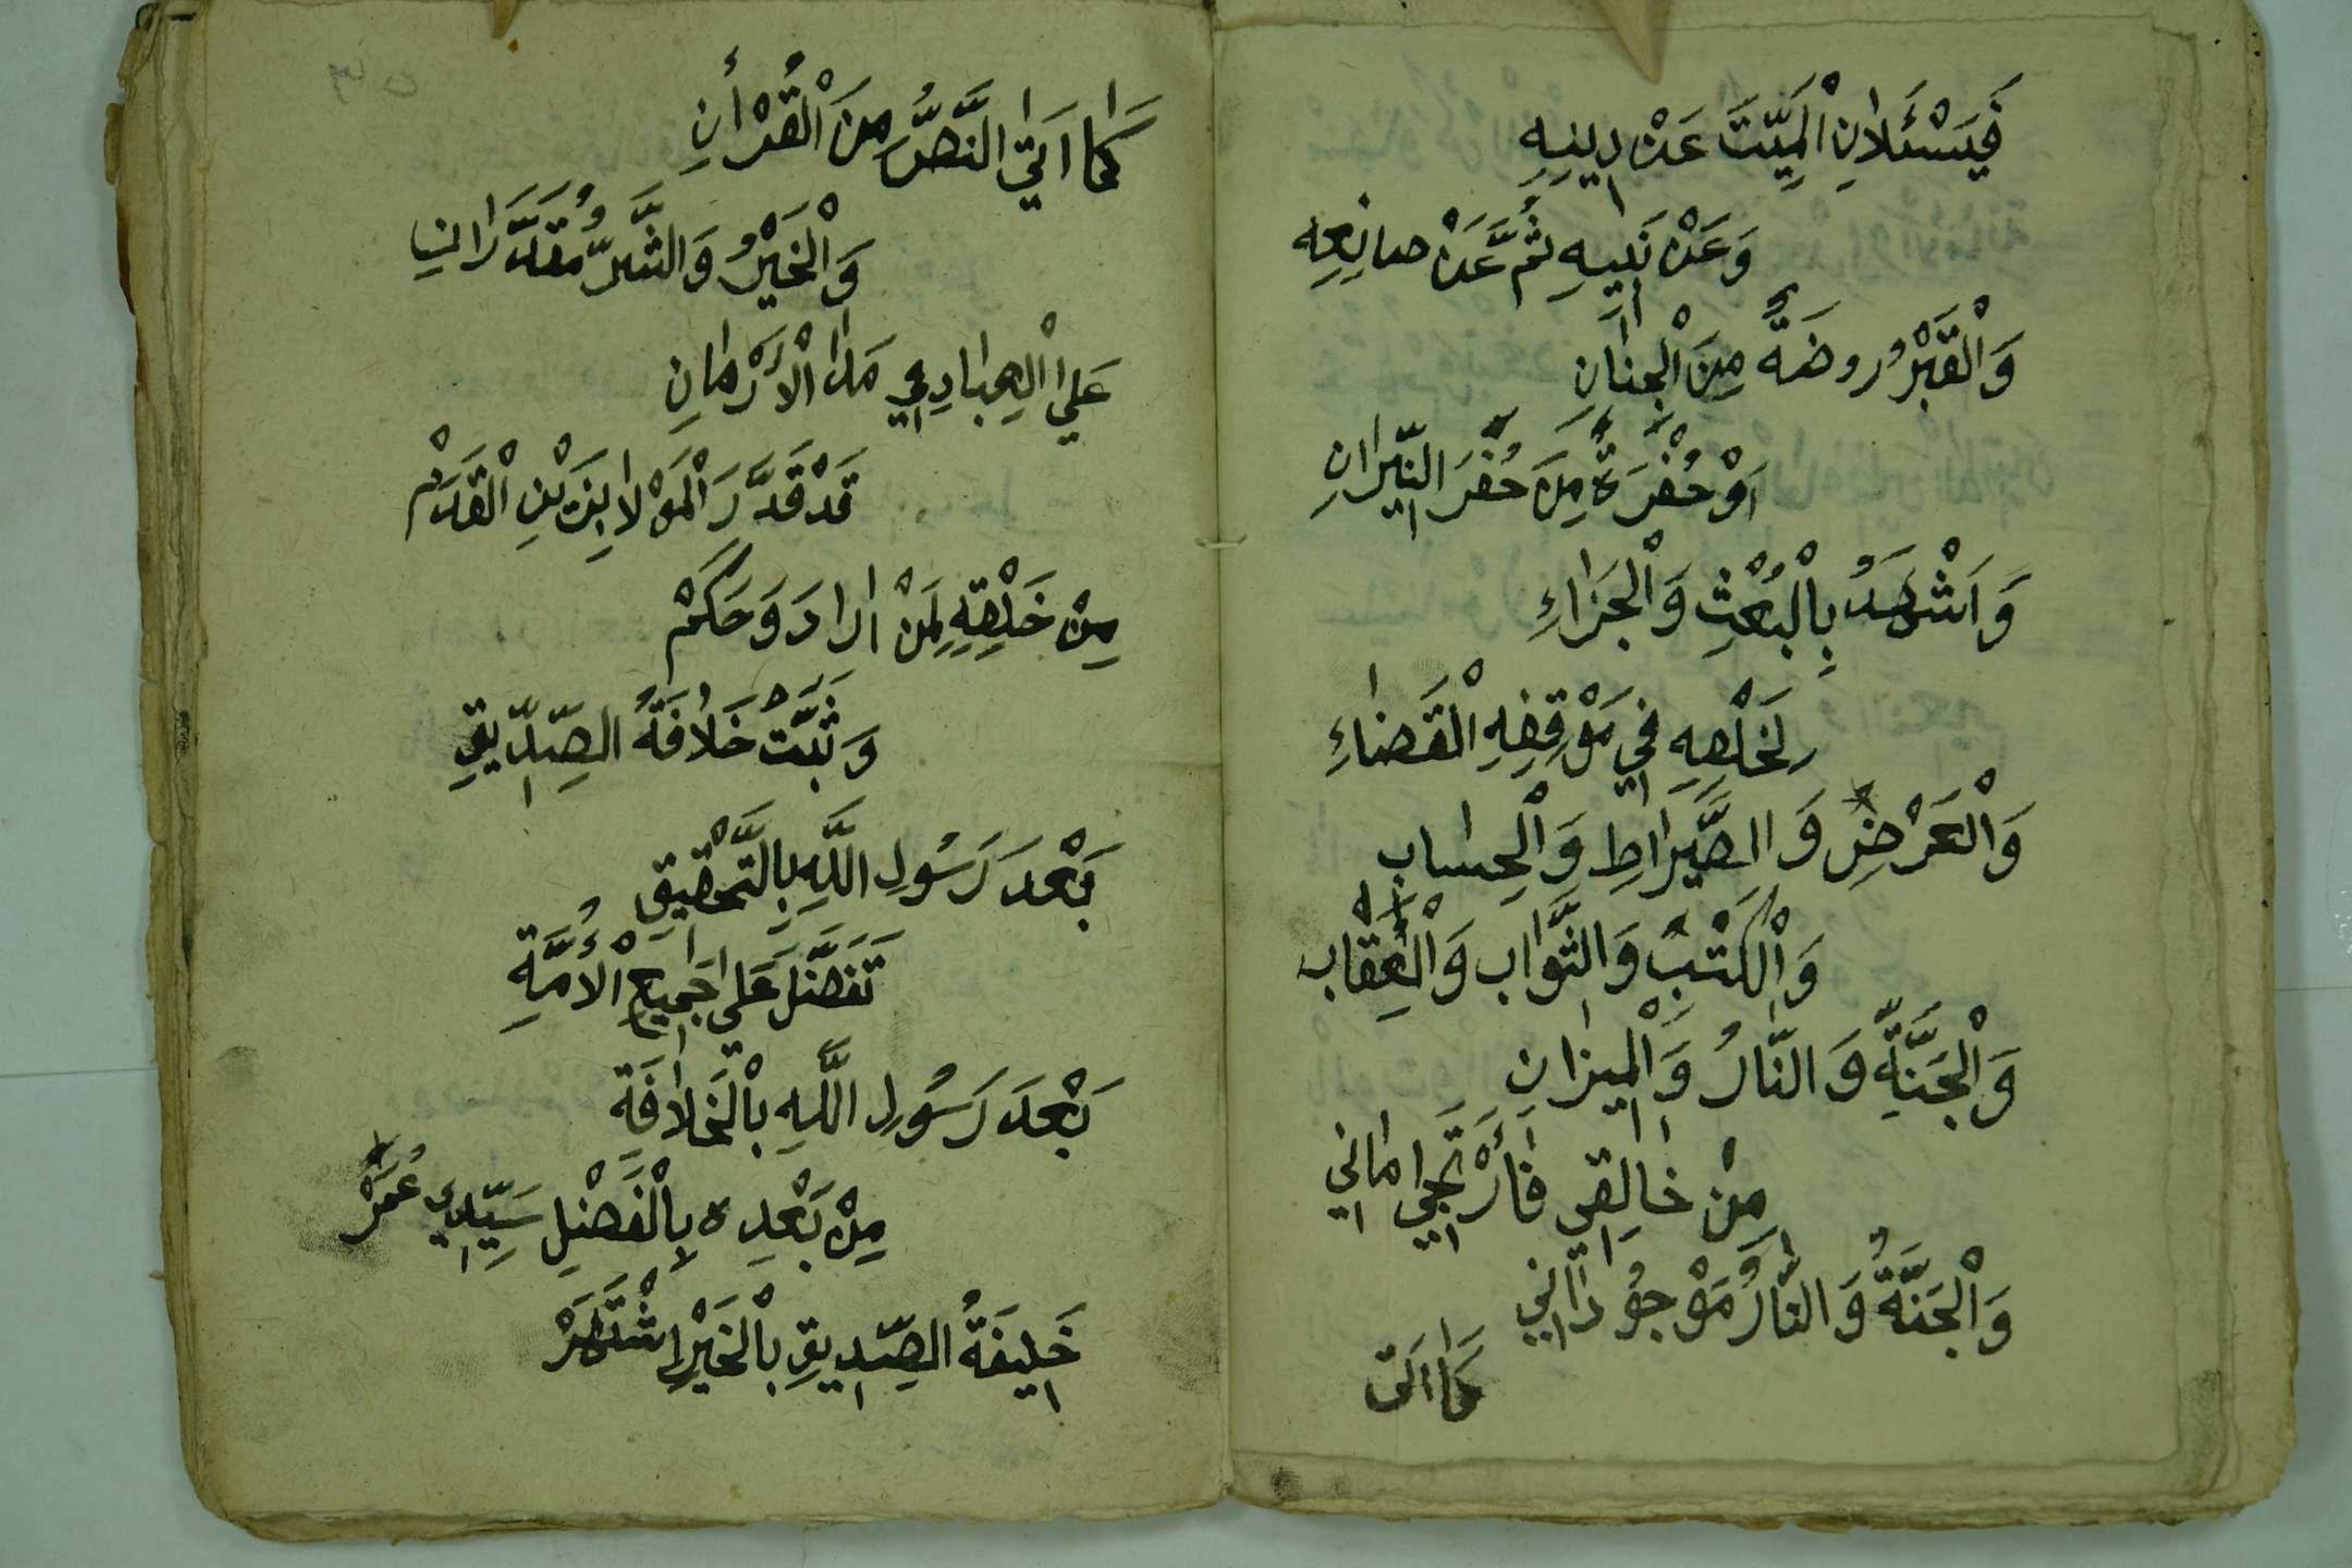 فَيَسْئَلَانِ الْمَيِّتَ عَنْ دِينِهِ
وَعَنْ نَبِيِهِ ثُمَّ عَنْ صانِعِه
وَالْقَبْرُ روضَةٌ مِنَ الْجِنَانِ
اَوْ حُفْرَةٌ مِنَ حُفَرَ النِّيرَانِ
وَاَشْهَدُ بِالْبُعْثِ وَالْجَزَاءِ
لِخَلْقِهِ فِي مَوْقِفِهِ الْقَضَاءِ
وَالْعَرْضِ وَالصِّرَاطِ وَالْحِسَاب
وَالْكُتْبِ وَالثَّوَاب وَالْعِقَاب
وَالْجَنَّةِ وَالنَّارُ وَالْمِيزَانِ
مِنْ خَالِقِي فَأَرْتَجِي اَمَانِي
وَالْجَنَّةُ وَالنَّارُ مَوْجُودَانِي
كَمَا اَتَى
كَمَا اَتَى النَّصُّ مِنَ الْقُرْأٰنِ
وَالْخَيْرُ وَالشَّرُّ مُقَدَّرَانِ
عَلَى الْعِبَادِ فِي مَدَا الْأَزْمَانِ
قَدْ قَدَّرَ الْمَوْلَا بِذَيْنِ الْقَدَمْ
مِنْ خَلْقِهِ لِمَنْ اَرَادَ وَحَكَمْ
وَثَبَّتْ خَلَافَةُ الصِّدِّيقِ
بَعْدَ رَسُولِ اللَّهِ بِالتَّحْقِيقِ
تَفَضَّلَ عَلَى جَمِيعِ الْأُمَّةِ
بَعْدَ رَسُولِ اللَّهِ بِالْخَلَافَةِ
مِنْ بَعْدِهِ بِالْفَضْلِ سَيِّدِي عُمَرْ
خَلِيفَةُ الصِّدِيقِ بِالْخَيْرِ اشْتَهَرْ